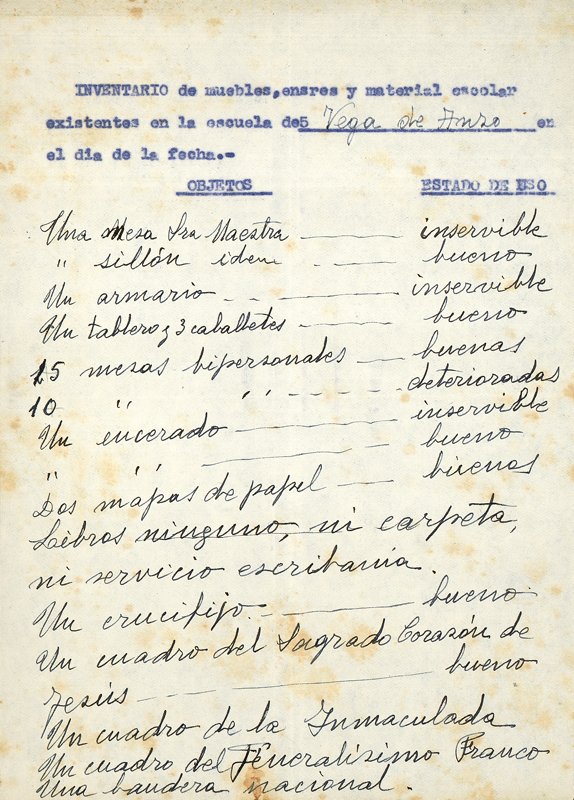 INVENTARIO de muebles,ensres y material escolar
existentes en la escuela de5 Vega de Anzo en
el dia de la fecha.-
OBJETOS ESTADO DE USO
Una mesa Sra Maestra inservible
" sillón idem bueno
Un armario inservible
Un tablero y 3 caballetes bueno
15 mesas bipersonales buenas
10 " " deterioradas
Un encerado inservible
" " bueno
Dos mapas de papel buenos
Libros ninguno, ni carpeta,
ni servicio escribania.
Un crucifijo bueno
Un cuadro del Sagrado Corazón de
Jesús bueno
Un cuadro de la Inmaculada
Un cuadro del Generalísimo Franco
Una bandera nacional.